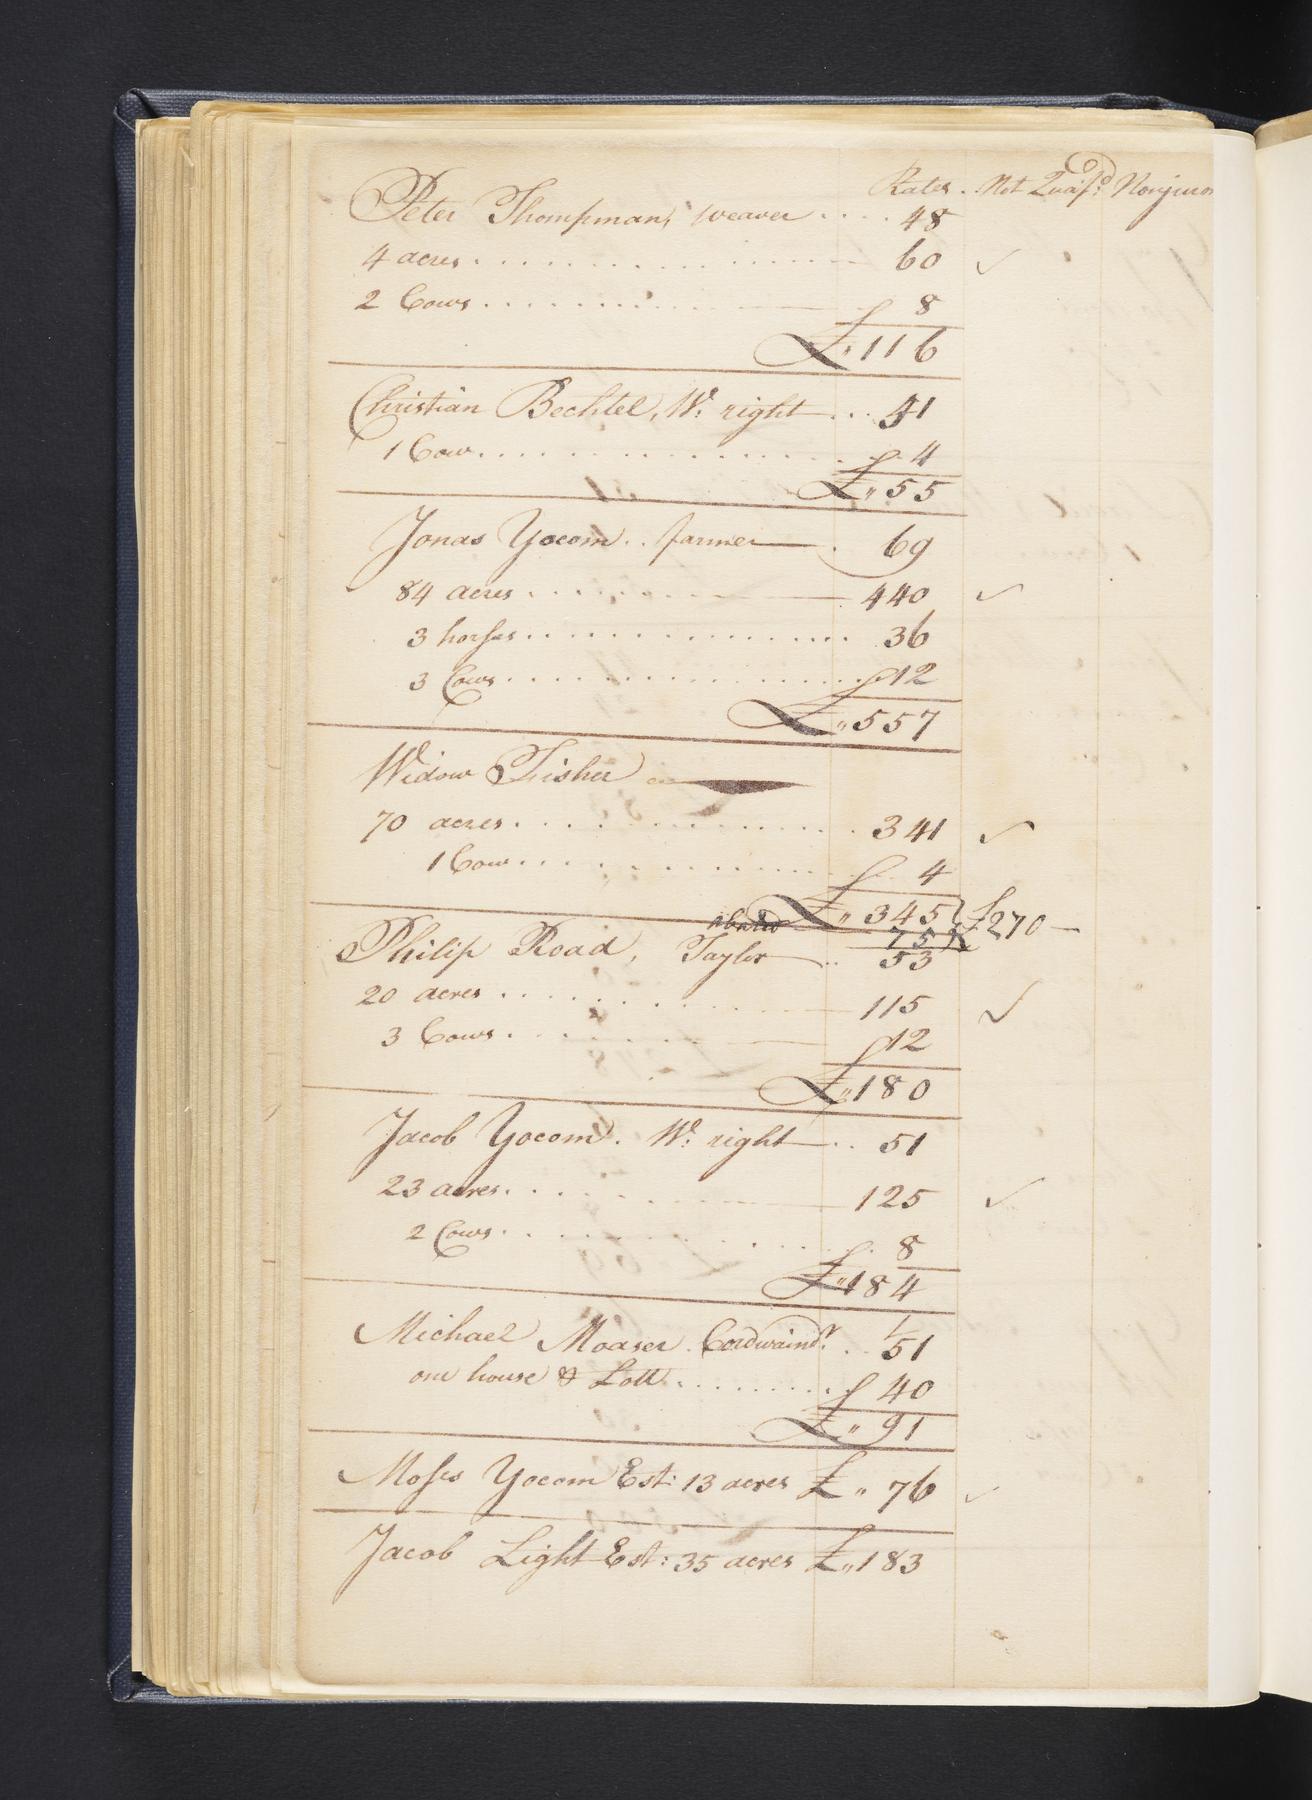 Rates. Not Quaif:d Nonjuro
Peter Thompman, weaver .... 48
4 acres ............ 60 ✓
2 Cows ............ 8
£ „ 116
Christian Bechtel, W: right ... 51
1 Cow ............ 4
£ „ 55
Jonas Yocom .. farmer — . 69
84 acres ............ 440 ✓
3 horses ............ 36
3 Cows ............ 12
£ „ 557
Widow Fisher
70 acres ............ 341 ✓
1 Cow ............ 4
£ „ 345 } £270 —
abated 75
Philip Road, Taylor — .. 53
20 acres ............ 115 ✓
3 Cows ............ 12
£ „ 180
Jacob Yocom. W: right — .. 51
23 acres ............ 125 ✓
2 Cows ............ 8
£ „ 184
Michael Moaser. Cordwaindr: .. 51
one house & Lott ......... 40
£ „ 91
Moses Yocom Est: 13 acres £ „ 76 ✓
Jacob Light Est: 35 acres £ „ 183